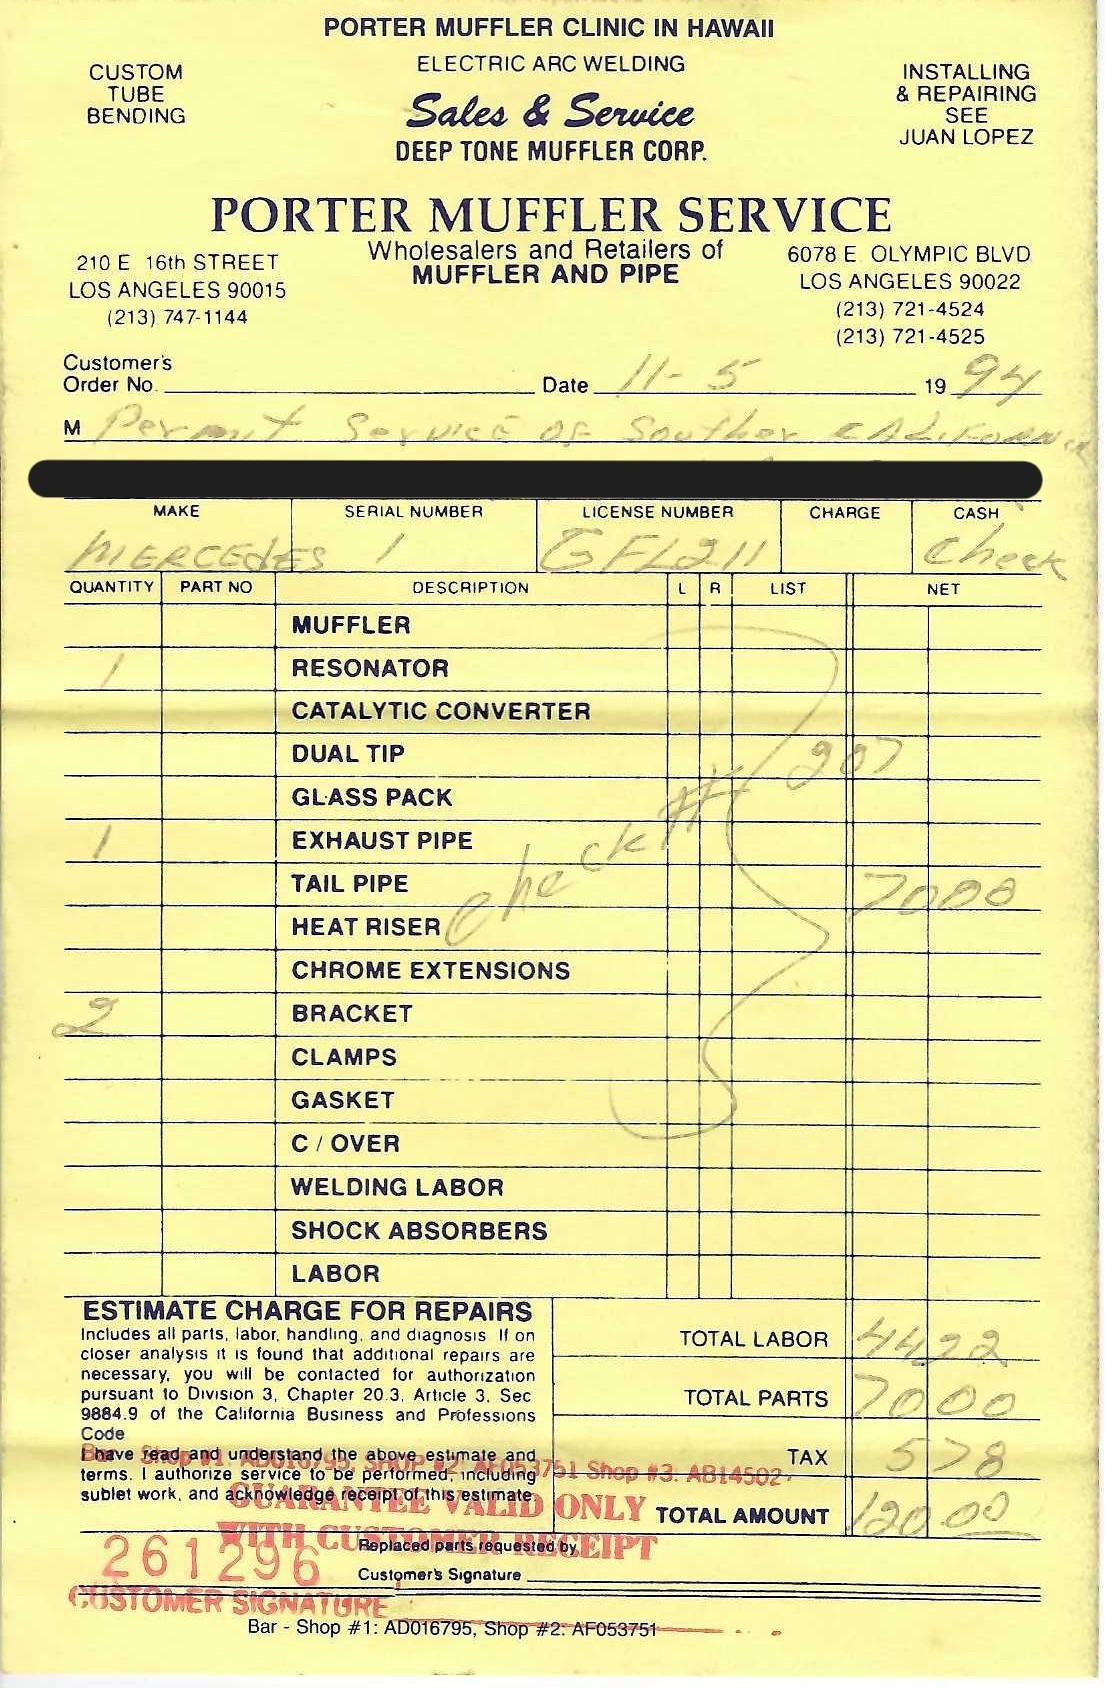 PORTER MUFFLER CLINIC IN HAWAII
ELECTRIC ARC WELDING
CUSTOM
TUBE
BENDING
Sales & Service
DEEP TONE MUFFLER CORP.
INSTALLING
& REPAIRING
SEE
JUAN LOPEZ
PORTER MUFFLER SERVICE
Wholesalers and Retailers of
MUFFLER AND PIPE
210 E 16th STREET
LOS ANGELES 90015
(213) 747-1144
6078 E. OLYMPIC BLVD
LOS ANGELES 90022
(213) 721-4524
(213) 721-4525
Customer's
Order No. Date 11-5 19 94
M Permit Service of Souther CALIFORNIA
MAKE SERIAL NUMBER LICENSE NUMBER CHARGE CASH
MERCEDES 1 GFL211 Check
QUANTITY PART NO DESCRIPTION L R LIST NET
MUFFLER
1 RESONATOR
CATALYTIC CONVERTER
DUAL TIP
GLASS PACK
check # 207
1 EXHAUST PIPE
TAIL PIPE 7000
HEAT RISER
CHROME EXTENSIONS
2 BRACKET
CLAMPS
GASKET
C / OVER
WELDING LABOR
SHOCK ABSORBERS
LABOR
ESTIMATE CHARGE FOR REPAIRS
Includes all parts, labor, handling, and diagnosis If on
closer analysis it is found that additional repairs are
necessary, you will be contacted for authorization
pursuant to Division 3, Chapter 20.3, Article 3, Sec
9884.9 of the California Business and Professions
Code
I have read and understand the above estimate and
terms. I authorize service to be performed, including
sublet work, and acknowledge receipt of this estimate
TOTAL LABOR 4422
TOTAL PARTS 7000
TAX 578
TOTAL AMOUNT 120.00
Bar - Shop #1: AD016795, SHOP #2: AF053751 Shop #3: AB14502
GUARANTEE VALID ONLY
WITH CUSTOMER RECEIPT
261296
Replaced parts requested by
Customer's Signature
CUSTOMER SIGNATURE
Bar - Shop #1: AD016795, Shop #2: AF053751